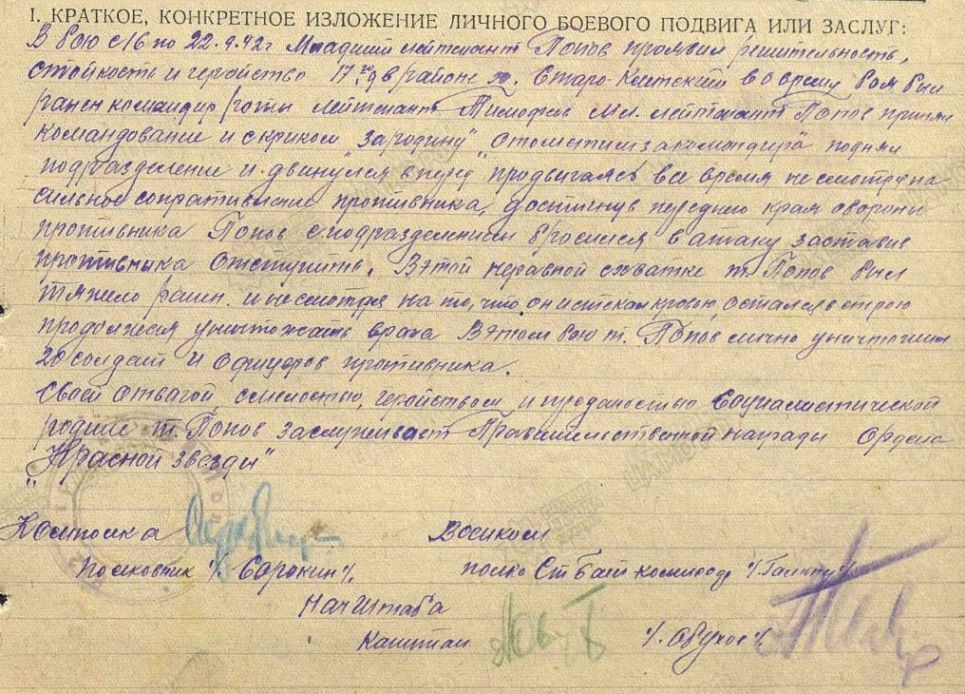 I. КРАТКОЕ, КОНКРЕТНОЕ ИЗЛОЖЕНИЕ ЛИЧНОГО БОЕВОГО ПОДВИГА ИЛИ ЗАСЛУГ:
В бою с 16 по 22.9.42г Младший лейтенант Попов проявил решительность,
стойкость и геройство 17.9 в районе Старо- во время боя был
ранен командир роты лейтенант Мл. лейтенант Попов принял
командование и с криком "За родину" "Отомстим за командира" поднял
подразделение и двинулся вперед продвигаясь все время не смотря на
сильное сопративление противника, достигнув переднего края обороны
противника Попов с подразделением бросился в атаку заставив
противника отступить. В этой неравной схватке т. Попов был
тяжело ранен. и не смотря на то, что он истекал кровью, остался в строю
продолжая уничтожать врага В этом бою т. Попов лично уничтожил
20 солдат и офицеров противника.
Своей отвагой смелостью, геройством и преданостью социалистической
родине т. Попов заслуживает Правительственной награды Ордена
"Красной звезды"
Комполка Военком
Полковник /. Сорокин/. полка Ст бат комиссар
Нач Штаба
Капитан /. Обухов /.